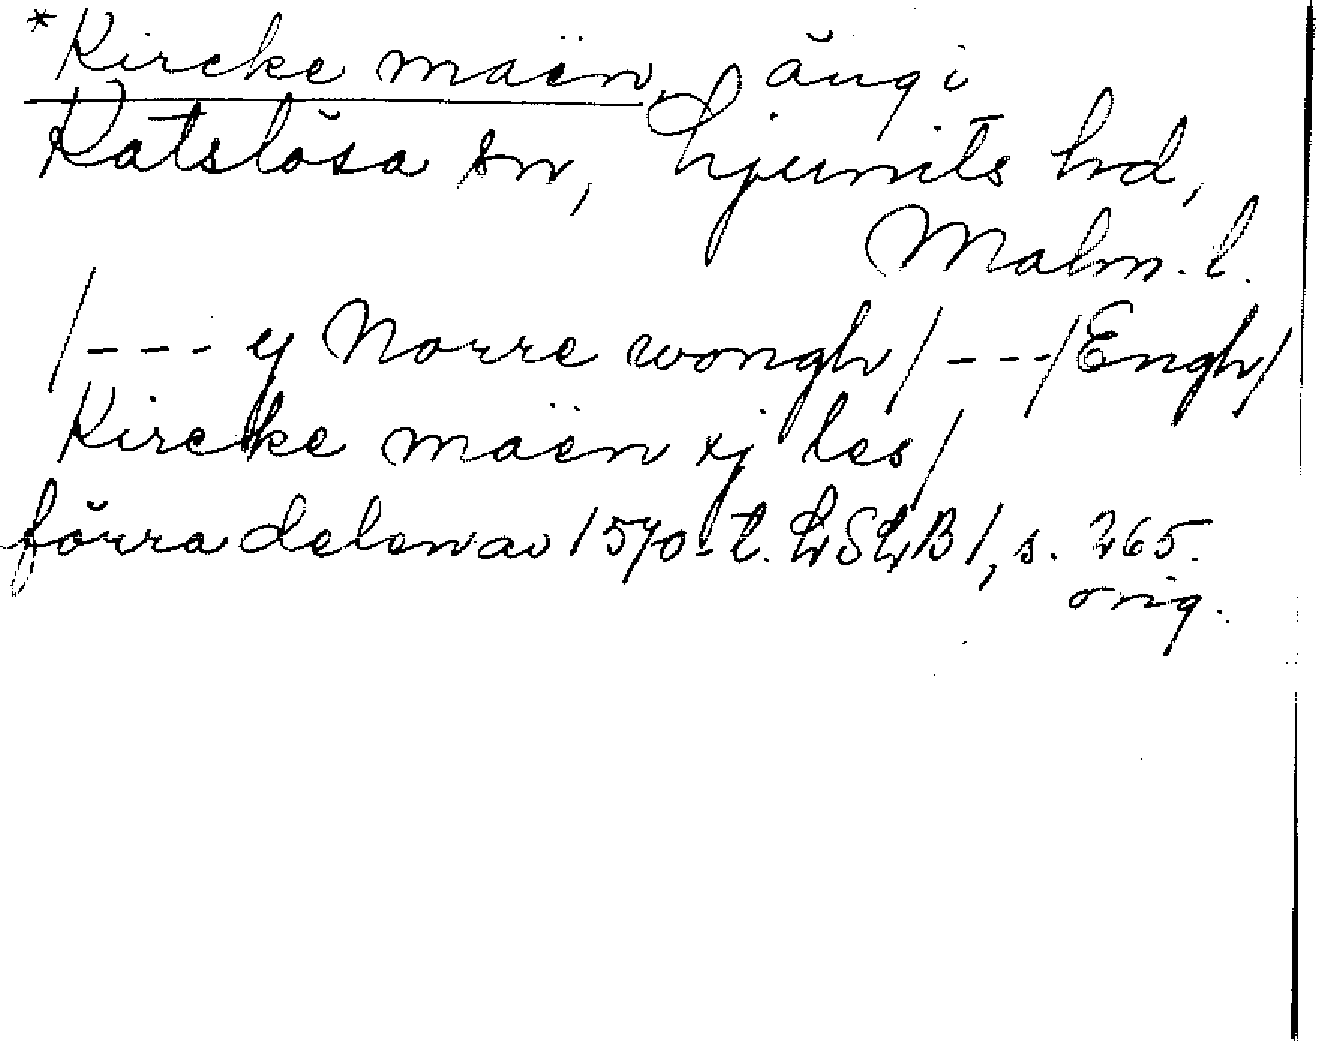 *Kircke maën, äng i
Katslösa sn, Ljunits hd,
Malm. l.
/--- y Norre wongh/ ---/Engh/
Kircke maën xj les/
förra delen av 1570-t. LSLB 1, s. 265.
orig.